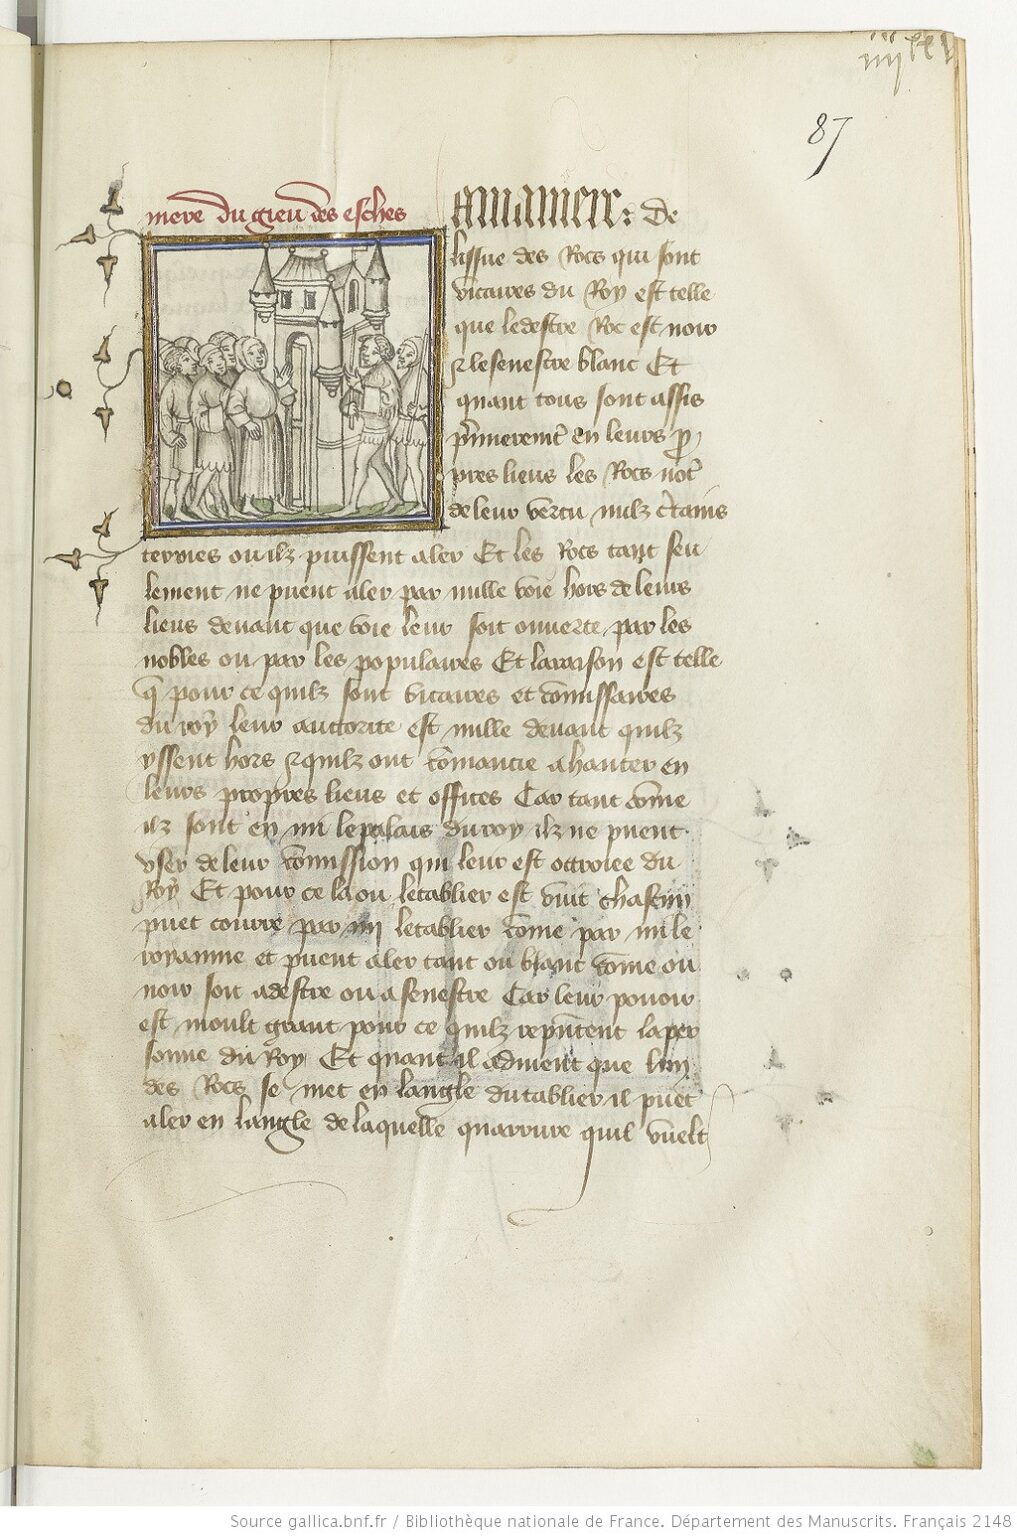 87
mere du gieu des esches
La maniere: de
lissue des Rocs qui sont
vicaires du Roy est telle
que ledestre Roc est noir
⁊ lesenestre blanc Et
quant tous sont assis
en leurs p̱
pres lieus les Rocs nōt
deleur vertu nulz c̄tains
termes ou ilz puissent aler Et les Rocs tant seu
lement ne pueent aler par nulle voie hors de leurs
lieus deuant que voie leur soit ouuerte par les
nobles ou par les populaires Et laraison est telle
q̄ pour ce quilz sont vicaires et cōmissaires
du roy leur auctorite est nulle deuant quilz
yssent hors ⁊ quilz ont cōmancie ahanter en
leurs propres lieus et offices Car tant cōme
ilz sont en mi lepalais du roy ilz ne pueent
vser deleur cōmission qui leur est octroiee du
Roy Et pour ce la ou letablier est vuit chascun
puet courre par mi letablier cōme par mi le
royaume et pueent aler tant ou blanc cōme ou
noir soit adestre ou a senestre Car leur pouoir
est moult grant pour ce quilz rep̄ntent laper
sonne du Roy Et quant il aduient que lun
des Rocs se met en langle dutablier il puet
aler en langle delaquelle quarrure quil vuelt
Source gallica.bnf.fr / Bibliothèque nationale de France. Département des Manuscrits. Français 2148